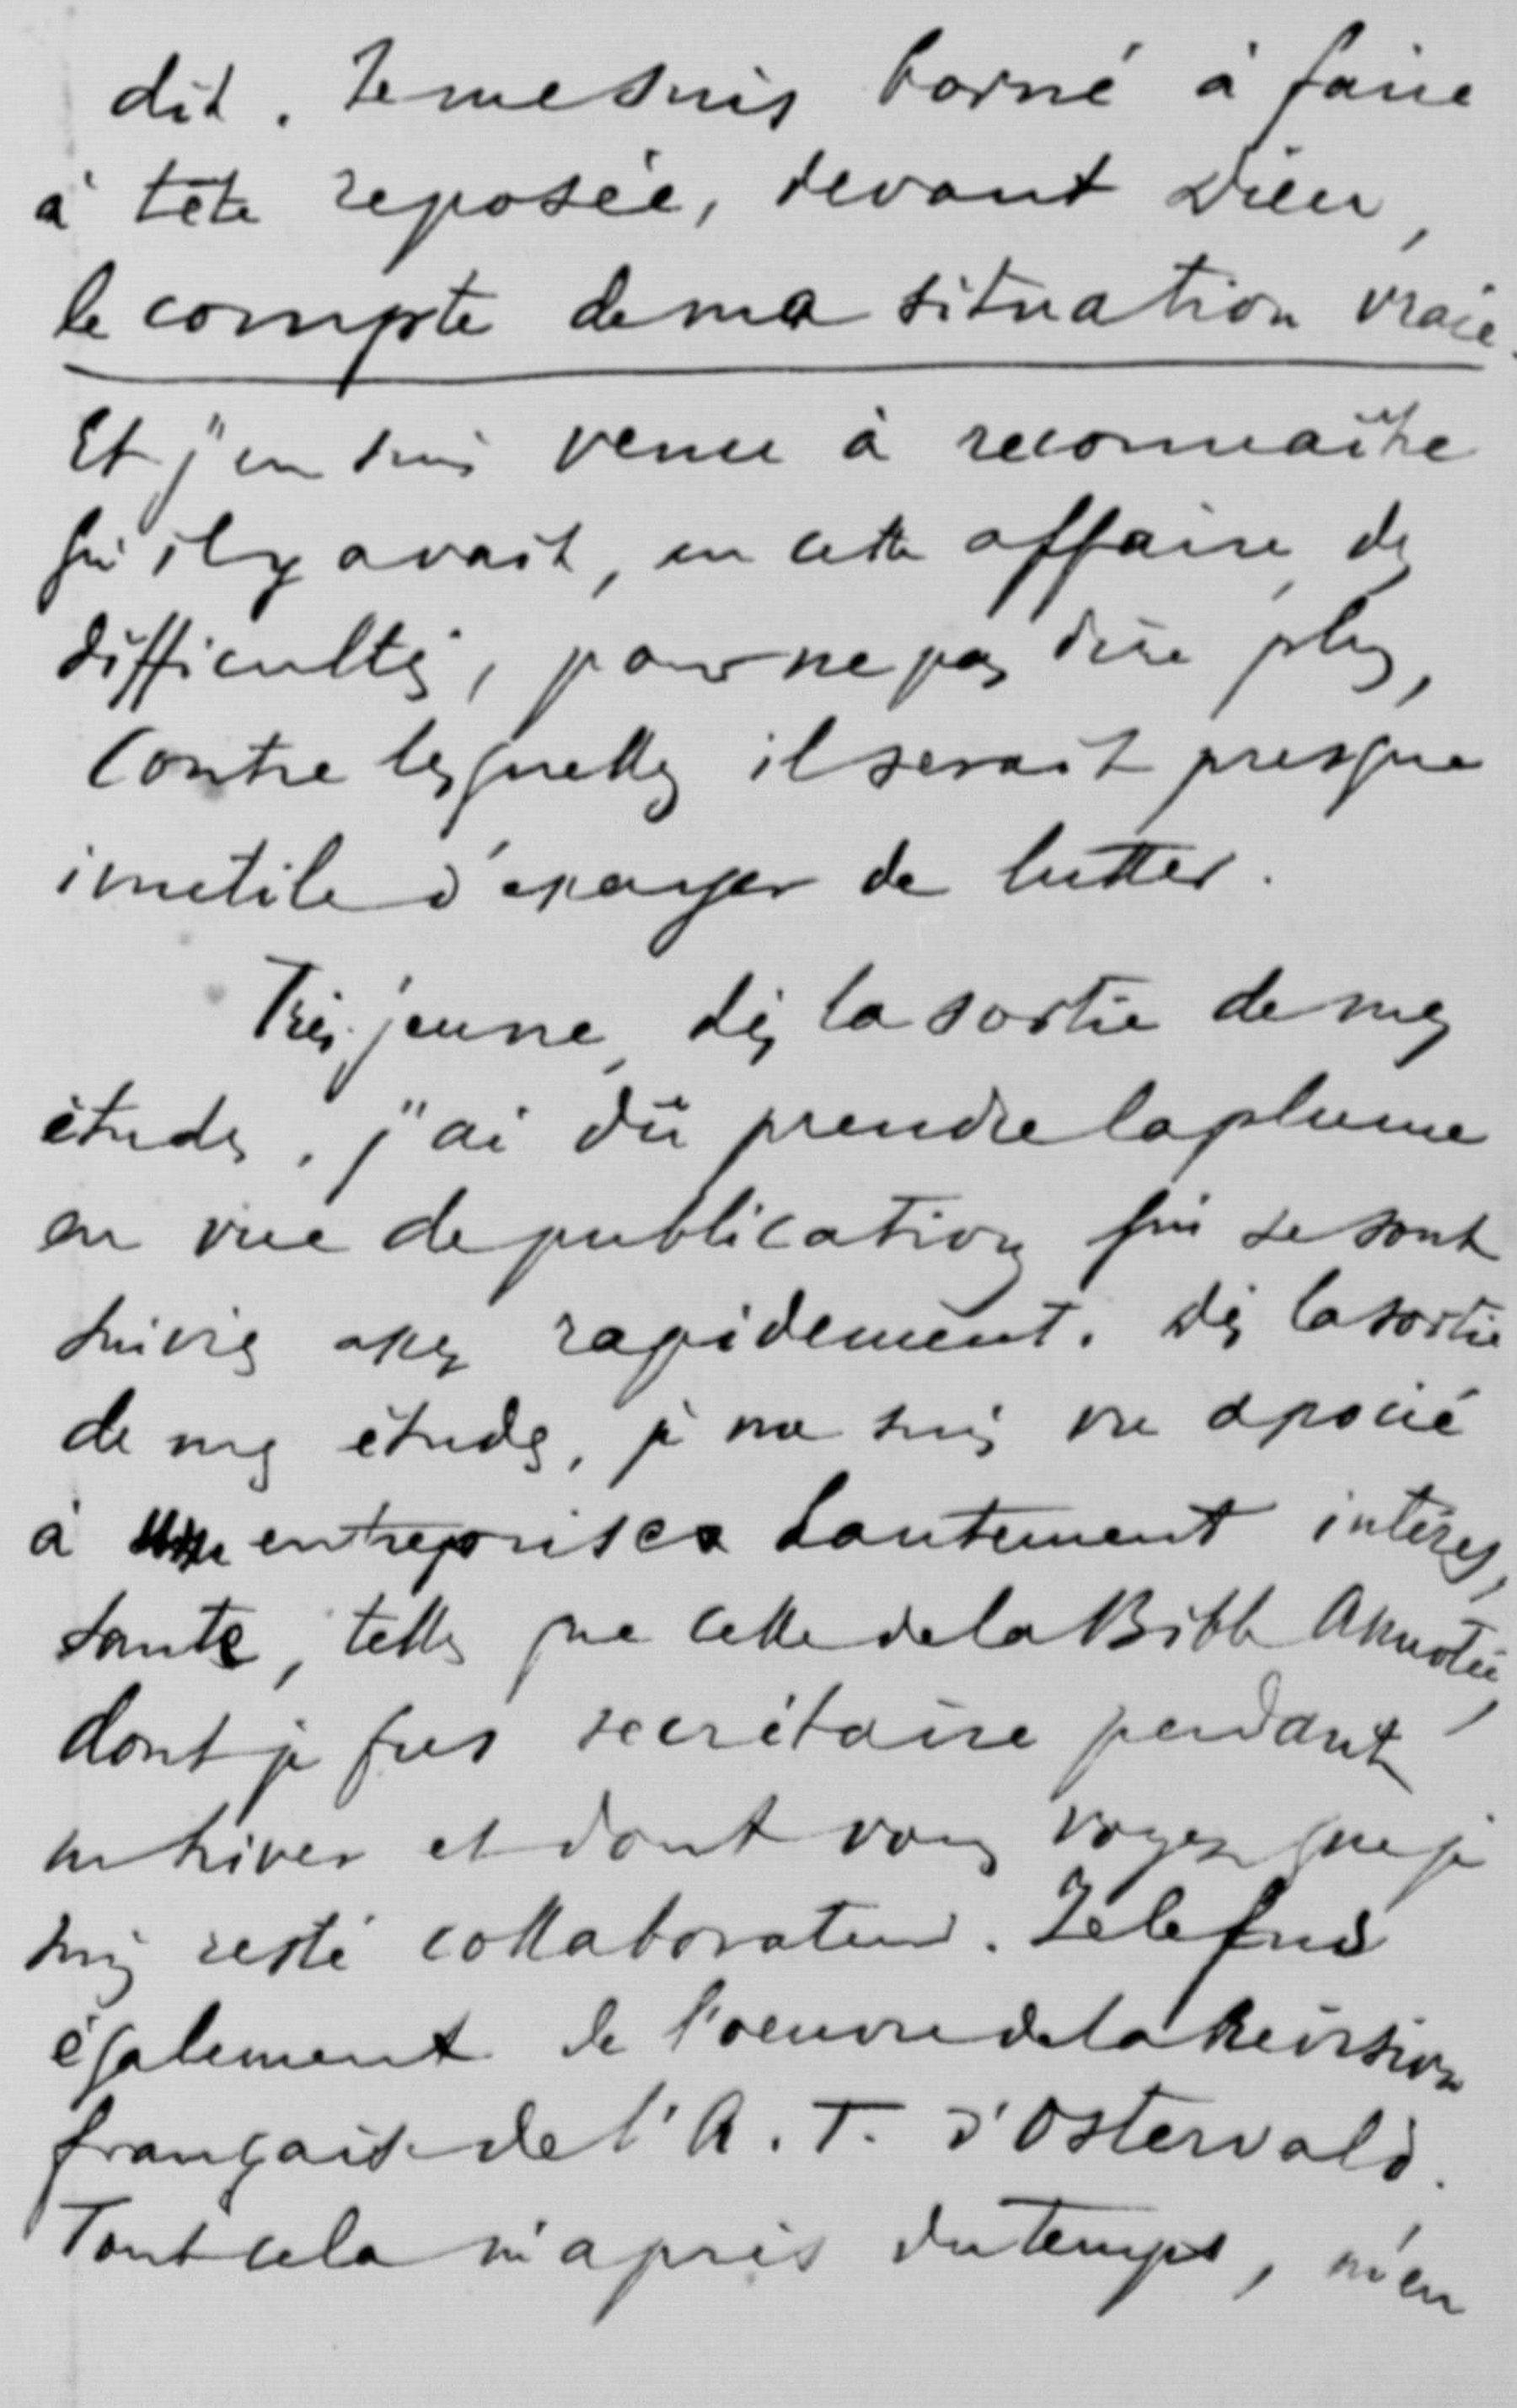 dit. Je me suis borné à faire
à tête reposée, devant Dieu,
le compte de ma situation vraie.
Et j'en suis venu à reconnaître
qu'il y avait, en cette affaire, des
difficultés, pour ne pas dire plus,
contre lesquelles il serait presque
inutile d'essayer de lutter.
Très jeune, dès la sortie de mes
études, j'ai dû prendre la plume
en vue de publications qui se sont
suivies assez rapidement. Dès la sortie
de mes études, je me suis vu associé
à entreprises hautement intéres,
sante, telles que celle de la Bible Annotée,
dont je fus secrétaire pendant
un hiver et dont vous voyez que je
suis resté collaborateur. Je le fus
également de l'oeuvre de la Revision
française de l'A. T. d'Ostervald.
Tout cela m'a pris du temps, m'en